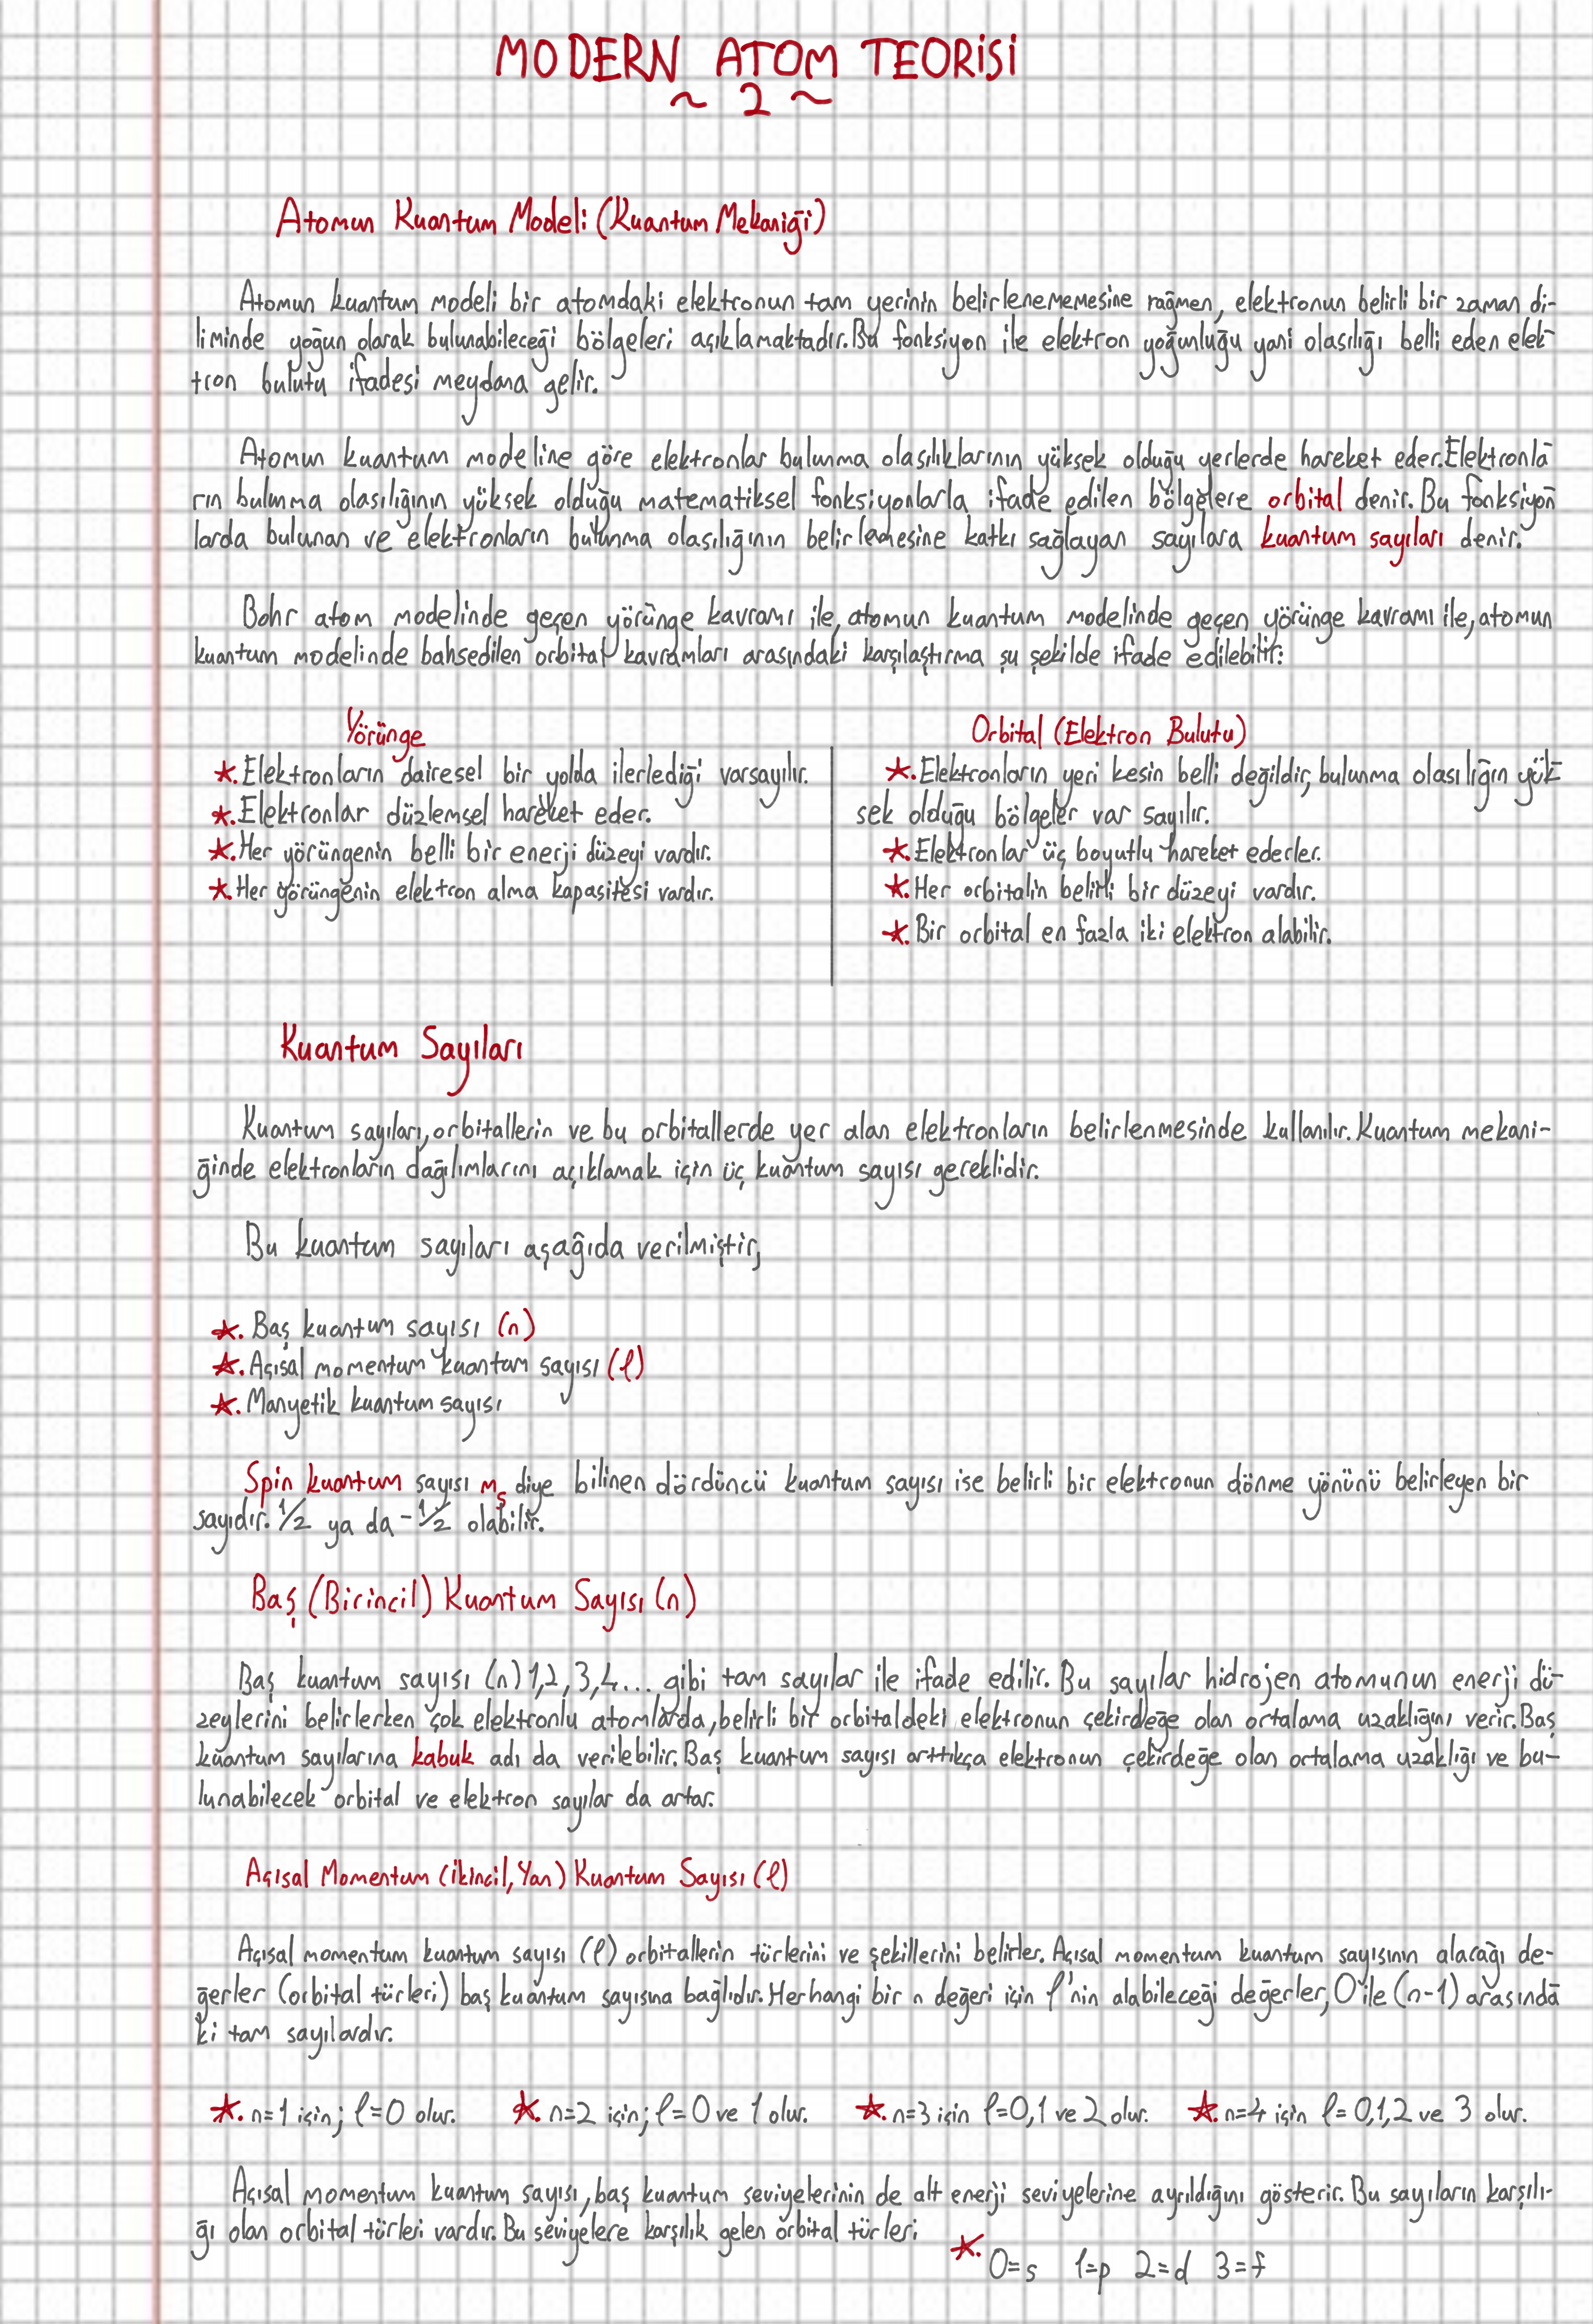 MODERN ATOM TEORİSİ
~ 2 ~
Atomun Kuantum Modeli (Kuantum Mekaniği)
Atomun kuantum modeli bir atomdaki elektronun tam yerinin belirlenememesine rağmen, elektronun belirli bir zaman di-
liminde yoğun olarak bulunabileceği bölgeleri açıklamaktadır. Bu fonksiyon ile elektron yoğunluğu yani olasılığı belli eden elek-
tron bulutu ifadesi meydana gelir.
Atomun kuantum modeline göre elektronlar bulunma olasılıklarının yüksek olduğu yerlerde hareket eder. Elektronla-
rın bulunma olasılığının yüksek olduğu matematiksel fonksiyonlarla ifade edilen bölgelere orbital denir. Bu fonksiyon-
larda bulunan ve elektronların bulunma olasılığının belirlemesine katkı sağlayan sayılara kuantum sayıları denir.
Bohr atom modelinde geçen yörünge kavramı ile, atomun kuantum modelinde geçen yörünge kavramı ile, atomun
kuantum modelinde bahsedilen orbital kavramları arasındaki karşılaştırma şu şekilde ifade edilebilir:
Yörünge
★. Elektronların dairesel bir yolda ilerlediği varsayılır.
★. Elektronlar düzlemsel hareket eder.
★. Her yörüngenin belli bir enerji düzeyi vardır.
★. Her yörüngenin elektron alma kapasitesi vardır.
Orbital (Elektron Bulutu)
★. Elektronların yeri kesin belli değildir, bulunma olasılığın yük-
sek olduğu bölgeler var sayılır.
★. Elektronlar üç boyutlu hareket ederler.
★. Her orbitalin belirli bir düzeyi vardır.
★. Bir orbital en fazla iki elektron alabilir.
Kuantum Sayıları
Kuantum sayıları, orbitallerin ve bu orbitallerde yer alan elektronların belirlenmesinde kullanılır. Kuantum mekani-
ğinde elektronların dağılımlarını açıklamak için üç kuantum sayısı gereklidir.
Bu kuantum sayıları aşağıda verilmiştir,
★. Baş kuantum sayısı (n)
★. Açısal momentum kuantum sayısı (ℓ)
★. Manyetik kuantum sayısı
Spin kuantum sayısı mₛ diye bilinen dördüncü kuantum sayısı ise belirli bir elektronun dönme yönünü belirleyen bir
sayıdır. 1/2 ya da -1/2 olabilir.
Baş (Birincil) Kuantum Sayısı (n)
Baş kuantum sayısı (n) 1,2,3,4... gibi tam sayılar ile ifade edilir. Bu sayılar hidrojen atomunun enerji dü-
zeylerini belirlerken çok elektronlu atomlarda, belirli bir orbitaldeki elektronun çekirdeğe olan ortalama uzaklığını verir. Baş
kuantum sayılarına kabuk adı da verilebilir. Baş kuantum sayısı arttıkça elektronun çekirdeğe olan ortalama uzaklığı ve bu-
lunabilecek orbital ve elektron sayılar da artar.
Açısal Momentum (İkincil, Yan) Kuantum Sayısı (ℓ)
Açısal momentum kuantum sayısı (ℓ) orbitallerin türlerini ve şekillerini belirler. Açısal momentum kuantum sayısının alacağı de-
ğerler (orbital türleri) baş kuantum sayısına bağlıdır. Herhangi bir n değeri için ℓ'nin alabileceği değerler, 0 ile (n-1) arasında-
ki tam sayılardır.
★. n=1 için; ℓ=0 olur. ★. n=2 için; ℓ=0 ve 1 olur. ★. n=3 için ℓ=0,1 ve 2 olur. ★. n=4 için ℓ= 0,1,2 ve 3 olur.
Açısal momentum kuantum sayısı, baş kuantum seviyelerinin de alt enerji seviyelerine ayrıldığını gösterir. Bu sayıların karşılı-
ğı olan orbital türleri vardır. Bu seviyelere karşılık gelen orbital türleri
★. 0=s 1=p 2=d 3=f